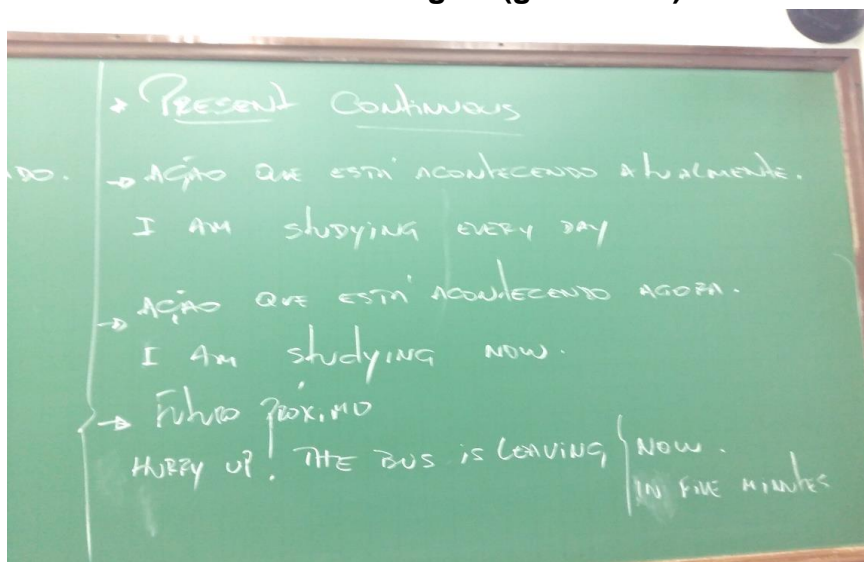 PRESENT CONTINUOUS
DO. → AÇÃO QUE ESTÁ ACONTECENDO ATUALMENTE.
I AM STUDYING EVERY DAY
→ AÇÃO QUE ESTÁ ACONTECENDO AGORA.
I AM STUDYING NOW.
→ FUTURO PRÓXIMO
HURRY UP! THE BUS IS LEAVING NOW.
IN FIVE MINUTES